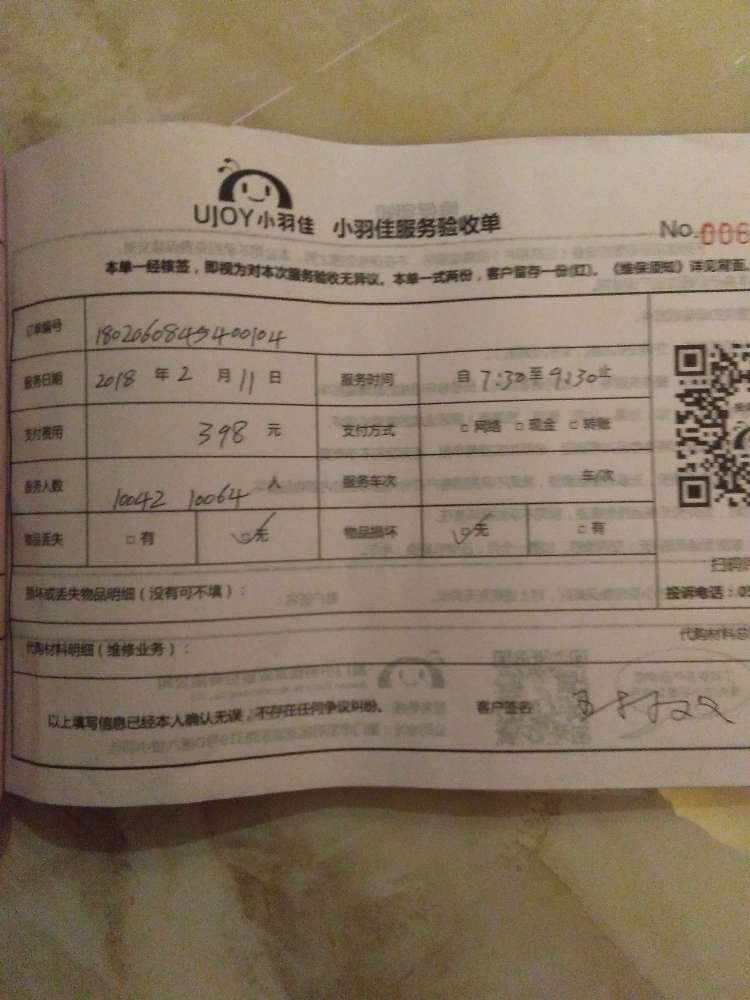 UJOY小羽佳 小羽佳服务验收单 No.006
本单一经核签，即视为对本次服务验收无异议。本单一式两份，客户留存一份(红)。《维保须知》详见背面。
订单编号 1802060845400104
服务日期 2018 年 2 月 11 日 服务时间 自 7:30 至 9:30 止
支付费用 398 元 支付方式 □ 网络 □ 现金 □ 转账
服务人数 10042 10064 人 服务车次 车/次
物品丢失 □ 有 ☑ 无 物品损坏 ☑ 无 □ 有
损坏或丢失物品明细（没有可不填）：
投诉电话：05
代购材料明细（维修业务）： 代购材料总
以上填写信息已经本人确认无误，不存在任何争议纠纷。 客户签名